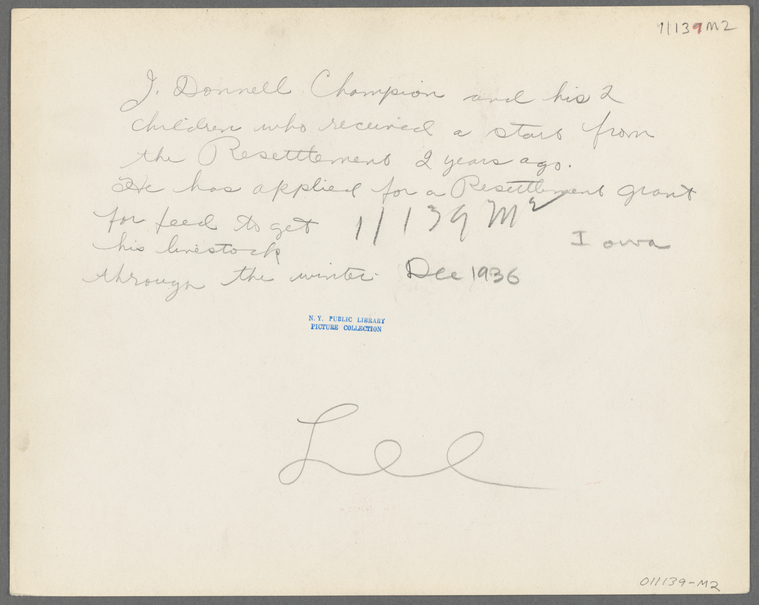 11139M2
J. Donnell Champion and his 2
children who received a start from
the Resettlement 2 years ago.
He has applied for a Resettlement grant
for feed to get
his livestock
through the winter.
11139 M2
Iowa
Dec 1936
N.Y. PUBLIC LIBRARY
PICTURE COLLECTION
Lee
011139-M2